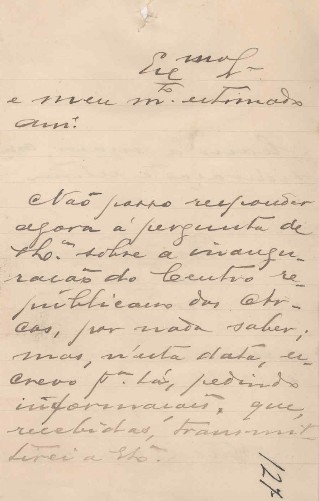 Exmo Sr.
e meu mto. estimado
amº.
Não posso responder
agora á pergunta de
sobre a inaugu-
ração do Centro re-
públicano das
por nada saber;
mas, n'esta data, es-
crevo pª. lá, pedindo
informações, que,
recebidas, transmit-
tirei a
127